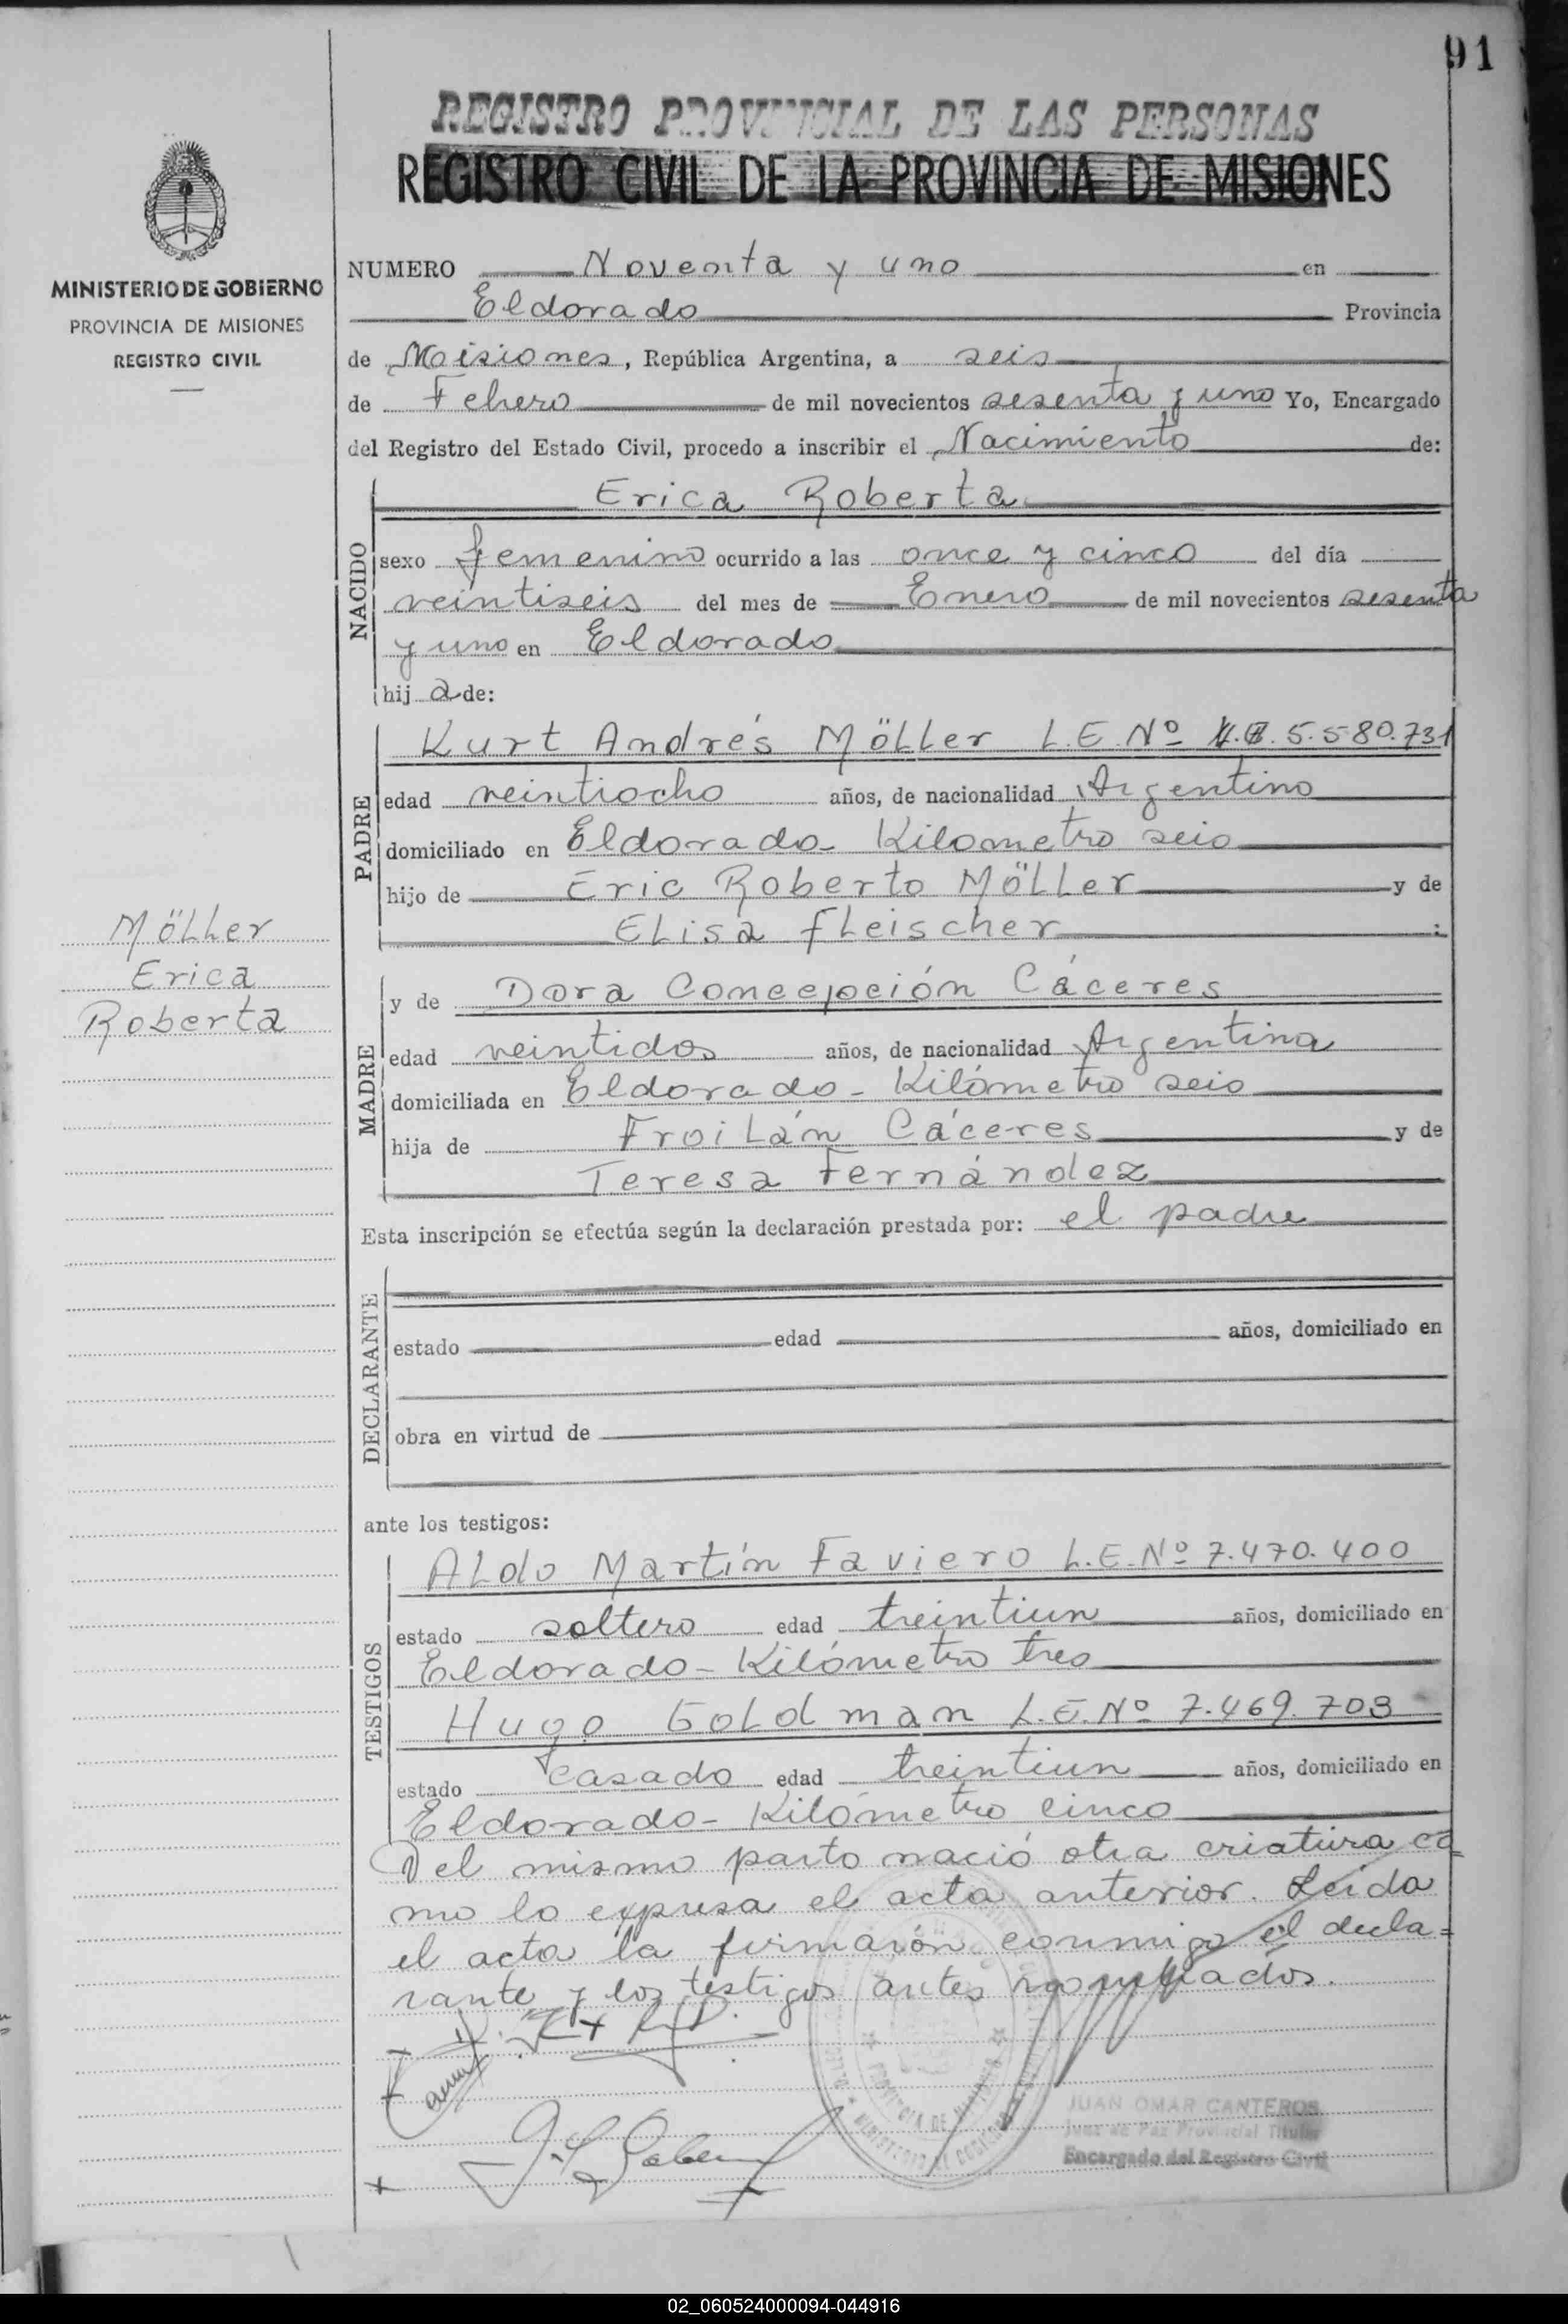 91
REGISTRO PROVINCIAL DE LAS PERSONAS
REGISTRO CIVIL DE LA PROVINCIA DE MISIONES
MINISTERIO DE GOBIERNO
PROVINCIA DE MISIONES
REGISTRO CIVIL
NUMERO Noventa y uno en
Eldorado Provincia
de Misiones, República Argentina, a seis
de Febrero de mil novecientos sesenta y uno Yo, Encargado
del Registro del Estado Civil, procedo a inscribir el Nacimiento de:
NACIDO
Erica Roberta
sexo femenino ocurrido a las once y cinco del día
veintiseis del mes de Enero de mil novecientos sesenta
y uno en Eldorado
hij a de:
PADRE
Kurt Andrés Möller L.E. Nº 5.580.731
edad veintiocho años, de nacionalidad Argentino
domiciliado en Eldorado - Kilometro seis
hijo de Eric Roberto Möller y de
Elisa Fleischer :
Möller
Erica
Roberta
MADRE
y de Dora Concepción Cáceres
edad veintidos años, de nacionalidad Argentina
domiciliada en Eldorado - Kilómetro seis
hija de Froilán Cáceres y de
Teresa Fernández
Esta inscripción se efectúa según la declaración prestada por: el padre
DECLARANTE
estado edad años, domiciliado en
obra en virtud de
ante los testigos:
TESTIGOS
Aldo Martín Faviero L.E. Nº 7.470.400
estado soltero edad treintiun años, domiciliado en
Eldorado - Kilómetro tres
Hugo Goldman L.E. Nº 7.469.703
estado casado edad treintiun años, domiciliado en
Eldorado - Kilómetro cinco
Del mismo parto nació otra criatura co=
mo lo expresa el acta anterior. Leida
el acta la firmarón conmigo el decla=
rante y los testigos antes nombrados.
JUAN OMAR CANTEROS
Juez de Paz Provincial Titular
Encargado del Registro Civil
02_060524000094-044916